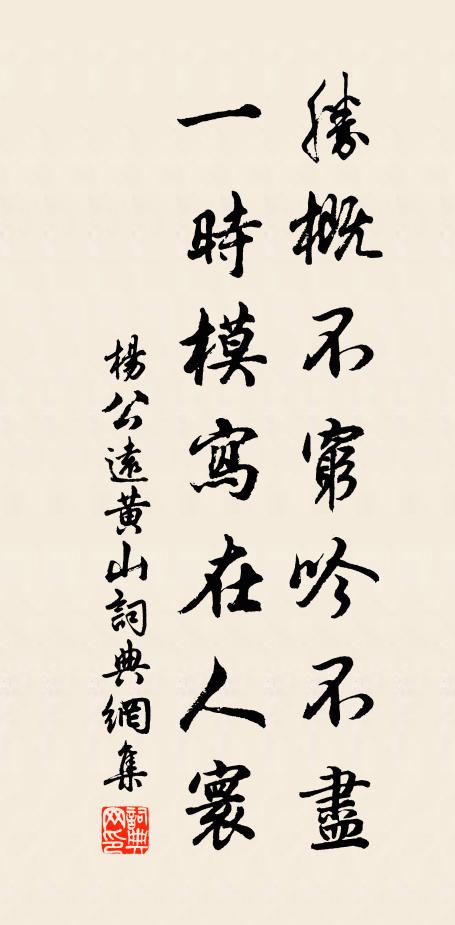 勝概不窮吟不盡
一時模寫在人寰
楊公遠黄山詞典網集
詞典
网印